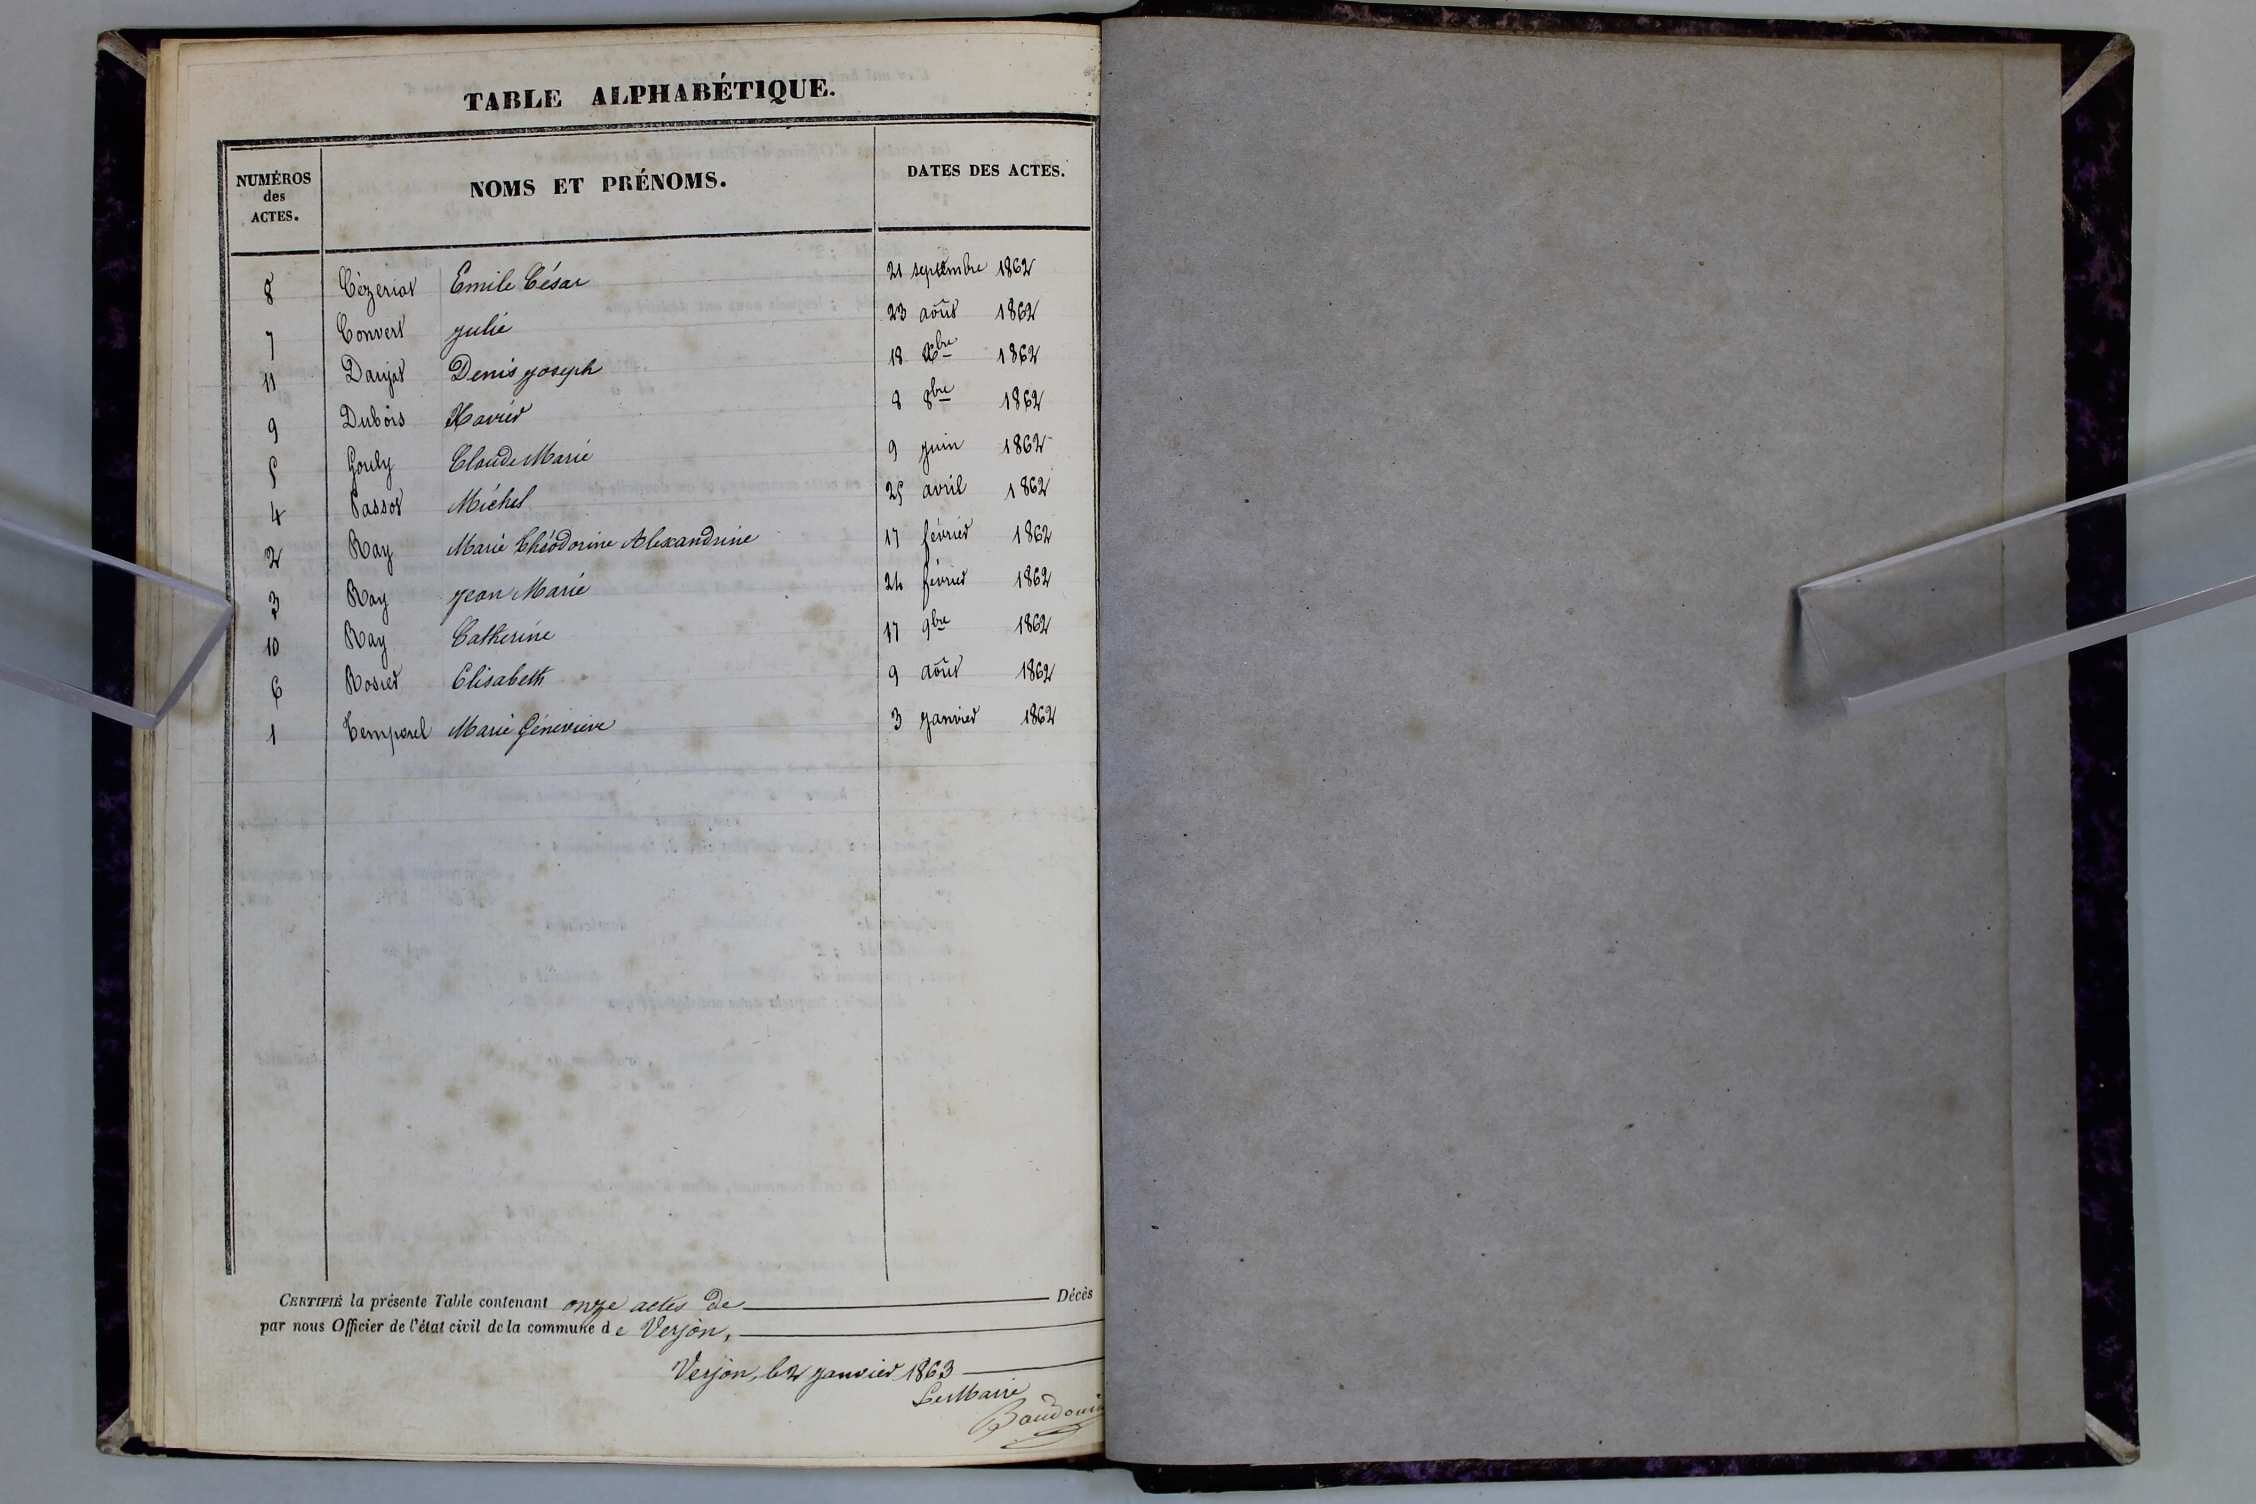 TABLE ALPHABÉTIQUE.
NUMÉROS des ACTES. NOMS ET PRÉNOMS. DATES DES ACTES.
8 Cézeriat Emile César 21 septembre 1862
7 Convert Julie 23 août 1862
11 Daujat Denis Joseph 18 Xbre 1862
9 Dubois Xavier 8 8bre 1862
5 Gouly Claude Marie 9 juin 1862
4 Passot Michel 25 avril 1862
2 Ray Marie Théodorine Alexandrine 17 février 1862
3 Ray Jean Marie 24 février 1862
10 Ray Catherine 17 9bre 1862
6 Rosier Elisabeth 9 août 1862
1 Temporel Marie Génevieve 3 janvier 1862
CERTIFIÉ la présente Table contenant onze actes de Décès
par nous Officier de l'état civil de la commune de Verjon,
Verjon, le 2 janvier 1863
Le Maire
Baudouin